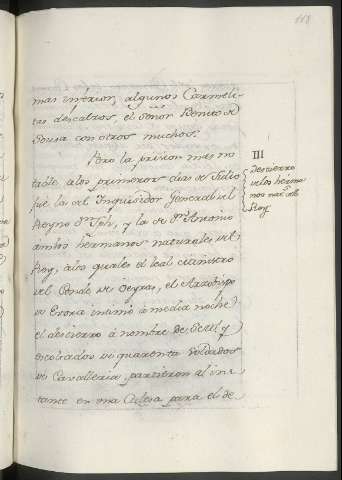 118
mas inferior, algunos Carmeli-
tas descalzos, el Señor Benito de
Sousa con otros muchos.
Pero la prision mas no-
table, a los primeros dias de Julio
fue la del Inquisidor General del
Reyno Dn. Jph, y la de Dn. Antonio
ambos hermanos naturales del
Rey, a los quales el leal
del Conde de Oeyras, el Arzobispo
de Evora intimó a media noche
el destierro á nombre de aquel y
escoltados de quarenta soldados
de Cavalleria, partieron al ins-
tante en una Calesa para el de
III
Destierro
de los herma
nos nats. del
Rey